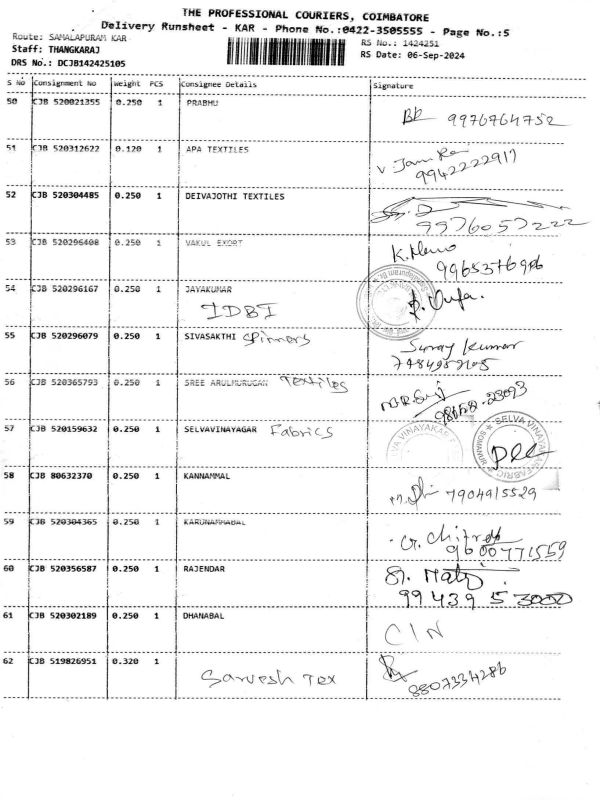 THE PROFESSIONAL COURIERS, COIMBATORE
Delivery Runsheet - KAR - Phone No.:0422-3505555 - Page No.:5
Route: SAMALAPURAM KAR
RS No.: 1424251
Staff: THANGKARAJ
RS Date: 06-Sep-2024
DRS No.: DCJB142425105
S No Consignment No Weight PCS Consignee Details Signature
50 CJB 520021355 0.250 1 PRABHU
9976764752
51 CJB 520312622 0.120 1 APA TEXTILES
9942222917
52 CJB 520304485 0.250 1 DEIVAJOTHI TEXTILES
9976057222
53 CJB 520296408 0.250 1 VAKUL EXORT
54 CJB 520296167 0.250 1 JAYAKUMAR
IDBI
55 CJB 520296079 0.250 1 SIVASAKTHI Spinners
Suray Kumar
56 CJB 520365793 0.250 1 SREE ARULMURUGAN Textiles
57 CJB 520159632 0.250 1 SELVAVINAYAGAR Fabrics
SELVA VINAYAKA FABRIC
58 CJB 80632370 0.250 1 KANNAMMAL
7904915529
59 CJB 520304365 0.250 1 KARUNAMMABAL
G. Chitra
9600771559
60 CJB 520356587 0.250 1 RAJENDAR
99439 53000
61 CJB 520302189 0.250 1 DHANABAL
CIN
62 CJB 519826951 0.320 1 Sarvesh Tex
8807334286